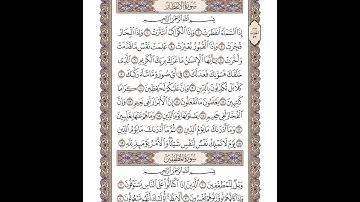 سُورَةُ الانفِطَارِ
بِسْمِ ٱللَّهِ ٱلرَّحْمَٰنِ ٱلرَّحِيمِ
إِذَا ٱلسَّمَآءُ ٱنفَطَرَتْ ۝ وَإِذَا ٱلْكَوَاكِبُ ٱنتَثَرَتْ ۝ وَإِذَا ٱلْبِحَارُ
فُجِّرَتْ ۝ وَإِذَا ٱلْقُبُورُ بُعْثِرَتْ ۝ عَلِمَتْ نَفْسٌ مَّا قَدَّمَتْ
وَأَخَّرَتْ ۝ يَٰٓأَيُّهَا ٱلْإِنسَٰنُ مَا غَرَّكَ بِرَبِّكَ ٱلْكَرِيمِ ۝ ٱلَّذِى
خَلَقَكَ فَسَوَّىٰكَ فَعَدَلَكَ ۝ فِىٓ أَىِّ صُورَةٍ مَّا شَآءَ رَكَّبَكَ ۝
كَلَّا بَلْ تُكَذِّبُونَ بِٱلدِّينِ ۝ وَإِنَّ عَلَيْكُمْ لَحَٰفِظِينَ ۝ كِرَامًا
كَٰتِبِينَ ۝ يَعْلَمُونَ مَا تَفْعَلُونَ ۝ إِنَّ ٱلْأَبْرَارَ لَفِى نَعِيمٍ ۝ وَإِنَّ
ٱلْفُجَّارَ لَفِى جَحِيمٍ ۝ يَصْلَوْنَهَا يَوْمَ ٱلدِّينِ ۝ وَمَا هُمْ عَنْهَا بِغَآئِبِينَ
۝ وَمَآ أَدْرَىٰكَ مَا يَوْمُ ٱلدِّينِ ۝ ثُمَّ مَآ أَدْرَىٰكَ مَا يَوْمُ ٱلدِّينِ
۝ يَوْمَ لَا تَمْلِكُ نَفْسٌ لِّنَفْسٍ شَيْـًٔا وَٱلْأَمْرُ يَوْمَئِذٍ لِّلَّهِ ۝
سُورَةُ المُطَفِّفِينَ
بِسْمِ ٱللَّهِ ٱلرَّحْمَٰنِ ٱلرَّحِيمِ
وَيْلٌ لِّلْمُطَفِّفِينَ ۝ ٱلَّذِينَ إِذَا ٱكْتَالُوا۟ عَلَى ٱلنَّاسِ يَسْتَوْفُونَ ۝
وَإِذَا كَالُوهُمْ أَو وَّزَنُوهُمْ يُخْسِرُونَ ۝ أَلَا يَظُنُّ أُو۟لَٰٓئِكَ أَنَّهُم مَّبْعُوثُونَ